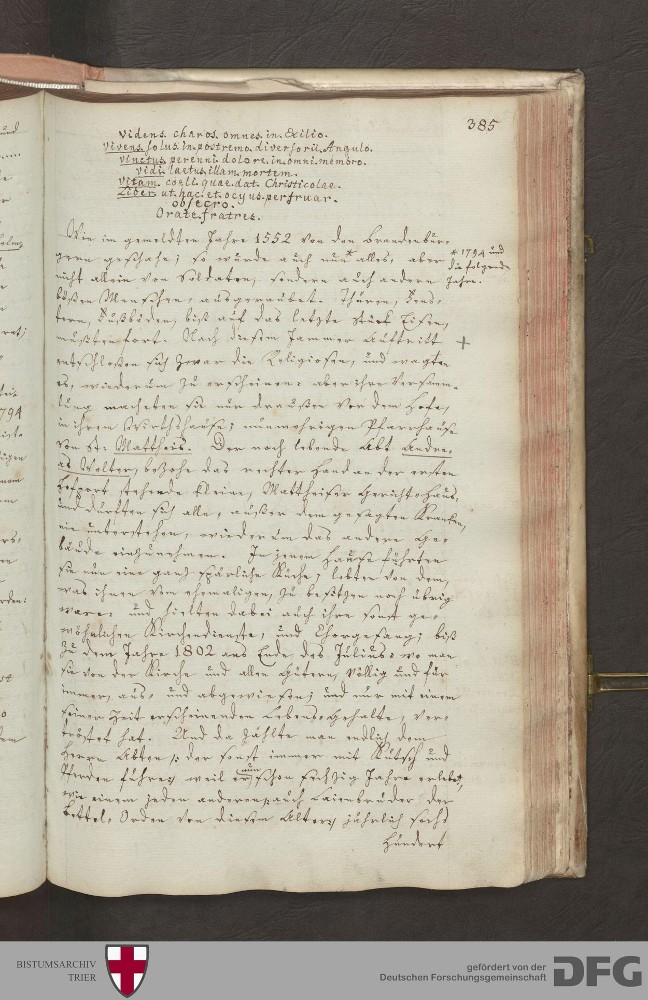 385
videns. charos. omnes. in. Exilio.
vivens. solus. in. postremo. diversorii. Angulo.
vinctus. perenni. dolore. in. omni. memoro.
vidi. laetus. illam. mortem.
vitam. coeli. quae. dat. Christicolae.
Liber. ut. hac. et. ocyus. perfruar.
obsecro.
Orate. fratres.
Wie im gemeldten Jahre 1552 von den Brandenbur-
gern geschahe; so wurde auch nun * alles, aber
* 1794 und
die folgende
Jahre.
nicht allein von Soldaten, sondern auch andern
bösen Menschen, ausgeraubet. Thüren, Fens-
tern, Fußböden, biß auf das letzte Stück Eisen,
mußten fort. Nach diesem Jammer Auftritt +
entschloßen sich zwar die Religiosen, und wagten
es, wiederum zu erscheinen: aber ihre Versamm-
lung machten sie nun draußen vor dem Hofe,
in ihrem Wirthshause; nunmehrigen Pfarrhause
von St. Mattheis. Der noch lebende Abt Andre-
as Welter, bezohe das rechter Hand an der ersten
Hofport stehende kleine, Mattheiser Gerichtshaus;
und durften sich alle, außer dem gesagten Kranken,
nie unterstehen, wiederum das andere Ge-
bäude einzunehmen. In jenem Hause führten
sie nun eine ganz spärliche Küche; lebten von dem,
was ihnen vom ehemaligen, zu besitzen noch übrig
ware: und hielten dabei auch ihre sonst ge-
wöhnlichen Kirchendienste, und Chorgesang; biß
zu dem Jahre 1802 ans Ende des Julius: wo man
sie von der Kirche und allen Gütern, völlig und für
immer, aus- und abgewiesen; und nur mit einem
seiner Zeit erscheinenden Lebensgehalte, ver-
tröstet hat. Und da zählte man endlich dem
Herrn Abten /: der sonst immer mit Kutsch und
Pferden fuhre/ weil er nun schon sechzig Jahre erlebt,
wie einem jeden anderen auch Laienbruder der
Bettel-Orden von diesem Alter, jährlich sechs
hundert
BISTUMSARCHIV
TRIER
gefördert von der
Deutschen Forschungsgemeinschaft
DFG